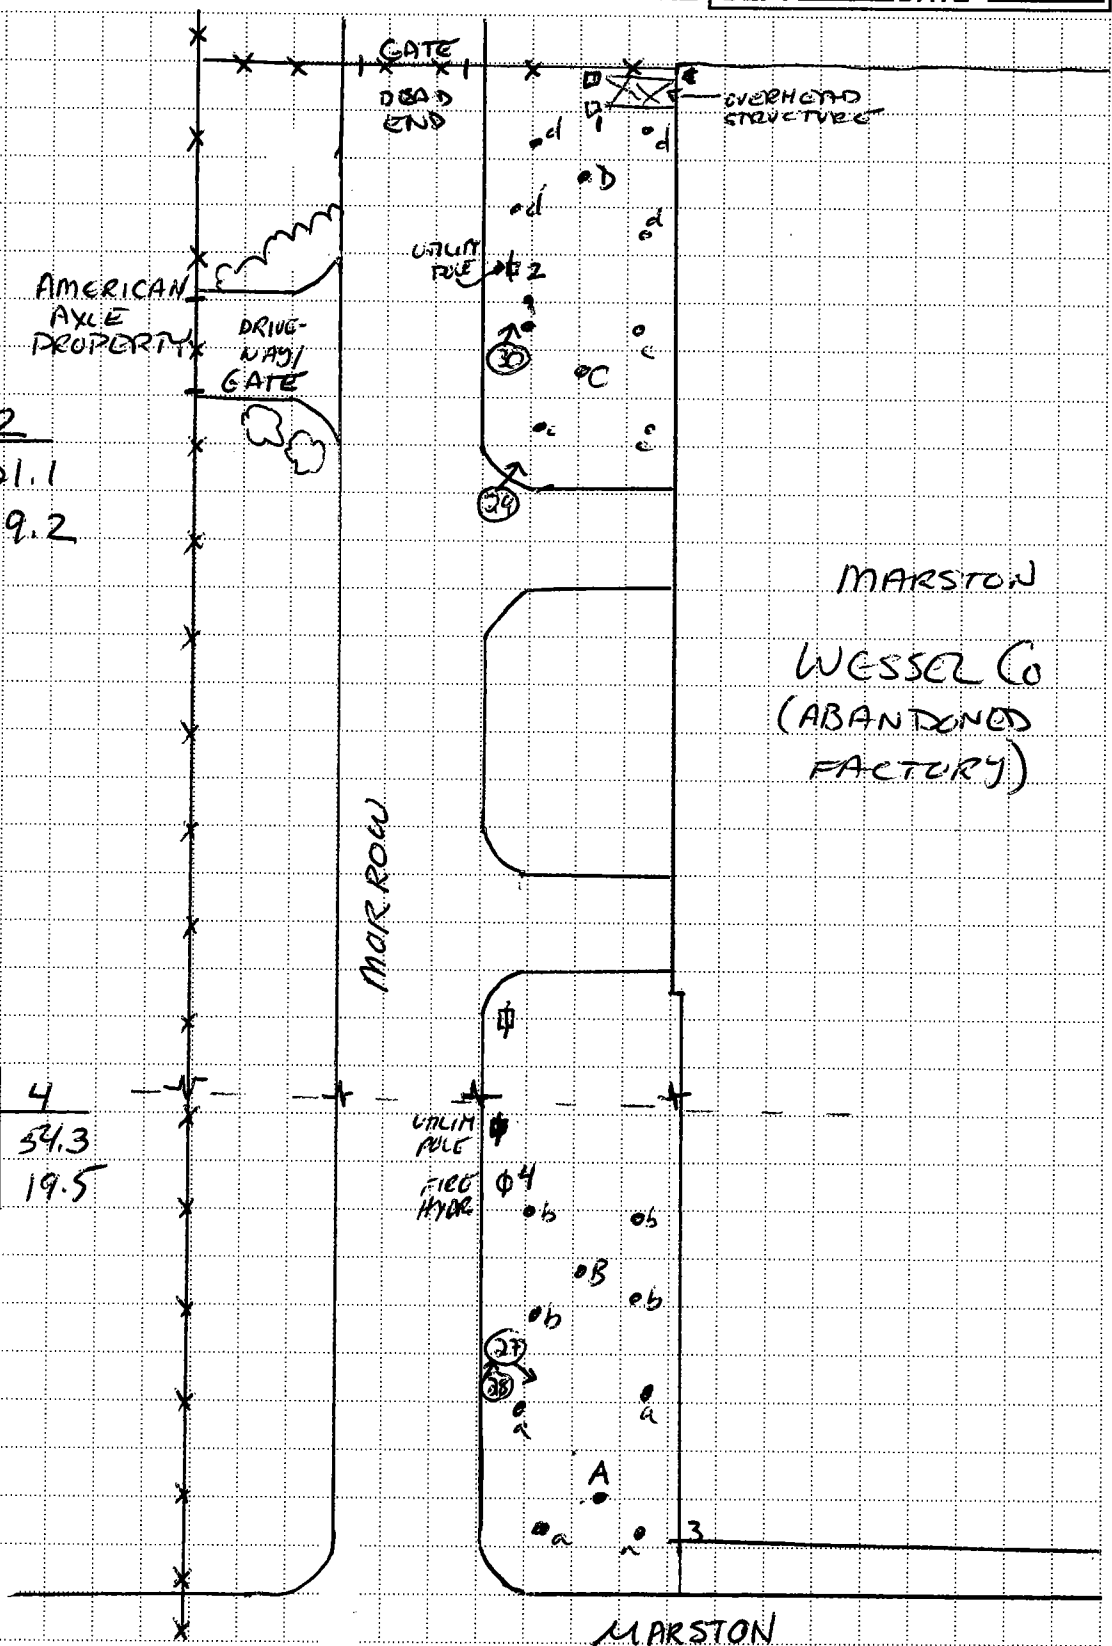 GATE
DEAD
END
OVERHEAD
STRUCTURE
1
d
d
D
d
d
UTILITY
POLE
2
AMERICAN
AXLE
PROPERTY
DRIVE-
WAY/
GATE
30
c
C
c
c
29
2
51.1
9.2
MARSTON
WESSEL Co
(ABANDONED
FACTORY)
MORROW
4
54.3
19.5
UTILITY
POLE
FIRE
HYDR
4
b
b
B
b
b
27
28
a
a
A
a
a
3
MARSTON